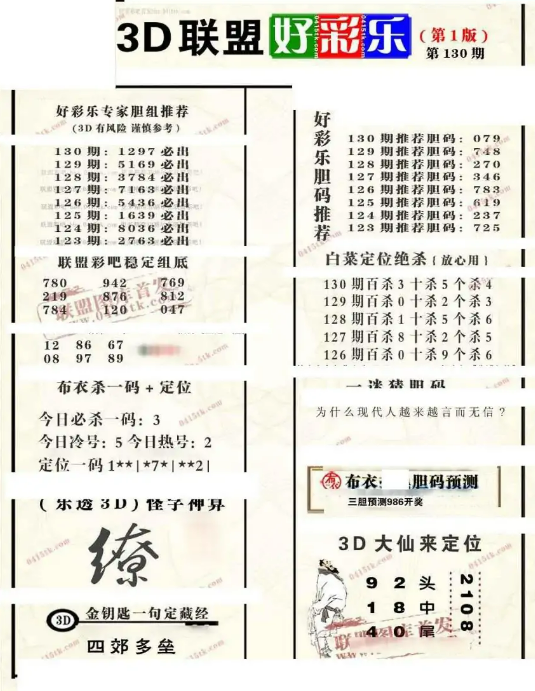 3D联盟好彩乐
（第1版）
第130期
好彩乐专家胆组推荐
(3D有风险 谨慎参考)
130期: 1297必出
129期: 5169必出
128期: 3784必出
127期: 7163必出
126期: 5436必出
125期: 1639必出
124期: 8036必出
123期: 2763必出
联盟彩吧稳定组底
780 942 769
219 876 812
784 120 047
12 86 67
08 97 89
布衣杀一码+定位
今日必杀一码: 3
今日冷号: 5 今日热号: 2
定位一码 1**|*7*|**2|
(乐透3D)怪字神算
缭
3D 金钥匙一句定藏经
四郊多垒
好彩乐胆码推荐
130期推荐胆码: 079
129期推荐胆码: 748
128期推荐胆码: 270
127期推荐胆码: 346
126期推荐胆码: 783
125期推荐胆码: 619
124期推荐胆码: 237
123期推荐胆码: 725
白菜定位绝杀(放心用)
130期百杀3十杀5个杀4
129期百杀0十杀2个杀3
128期百杀1十杀5个杀6
127期百杀8十杀2个杀5
126期百杀0十杀9个杀6
一谜猜胆码
为什么现代人越来越言而无信?
布衣 胆码预测
三胆预测986开奖
3D大仙来定位
9 2 头
1 8 中
4 0 尾
2108
联盟图库首发
www.0415tk.com